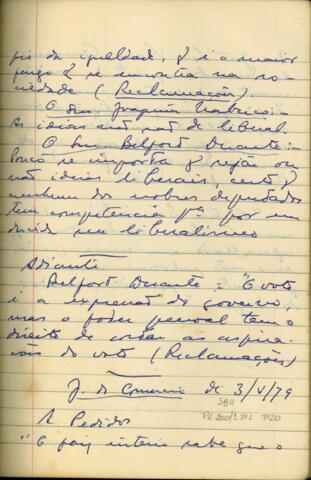 pio da igualdade, q é a maior
perigo q se encontra na so
ciedade (Reclamações).
O Snr. Joaquim Nabuco:-
As ideias não são de liberal.
O Snr. Belfort Duarte:-
Pouco se importa q sejão ou
não ideias liberais, certo q
nenhum dos nobres deputados
tem competencia pª por em
duvida seu liberalismo
Adiante
Belfort Duarte: "O voto
é a expressão do governo,
mas o poder pessoal tem o
direito de cortar as aspira
ções do voto (Reclamações)
J. do Comercio de 3/V/79
SBH
Px 200/2 P13 P20
A Pedidos
"O paiz inteiro sabe que o